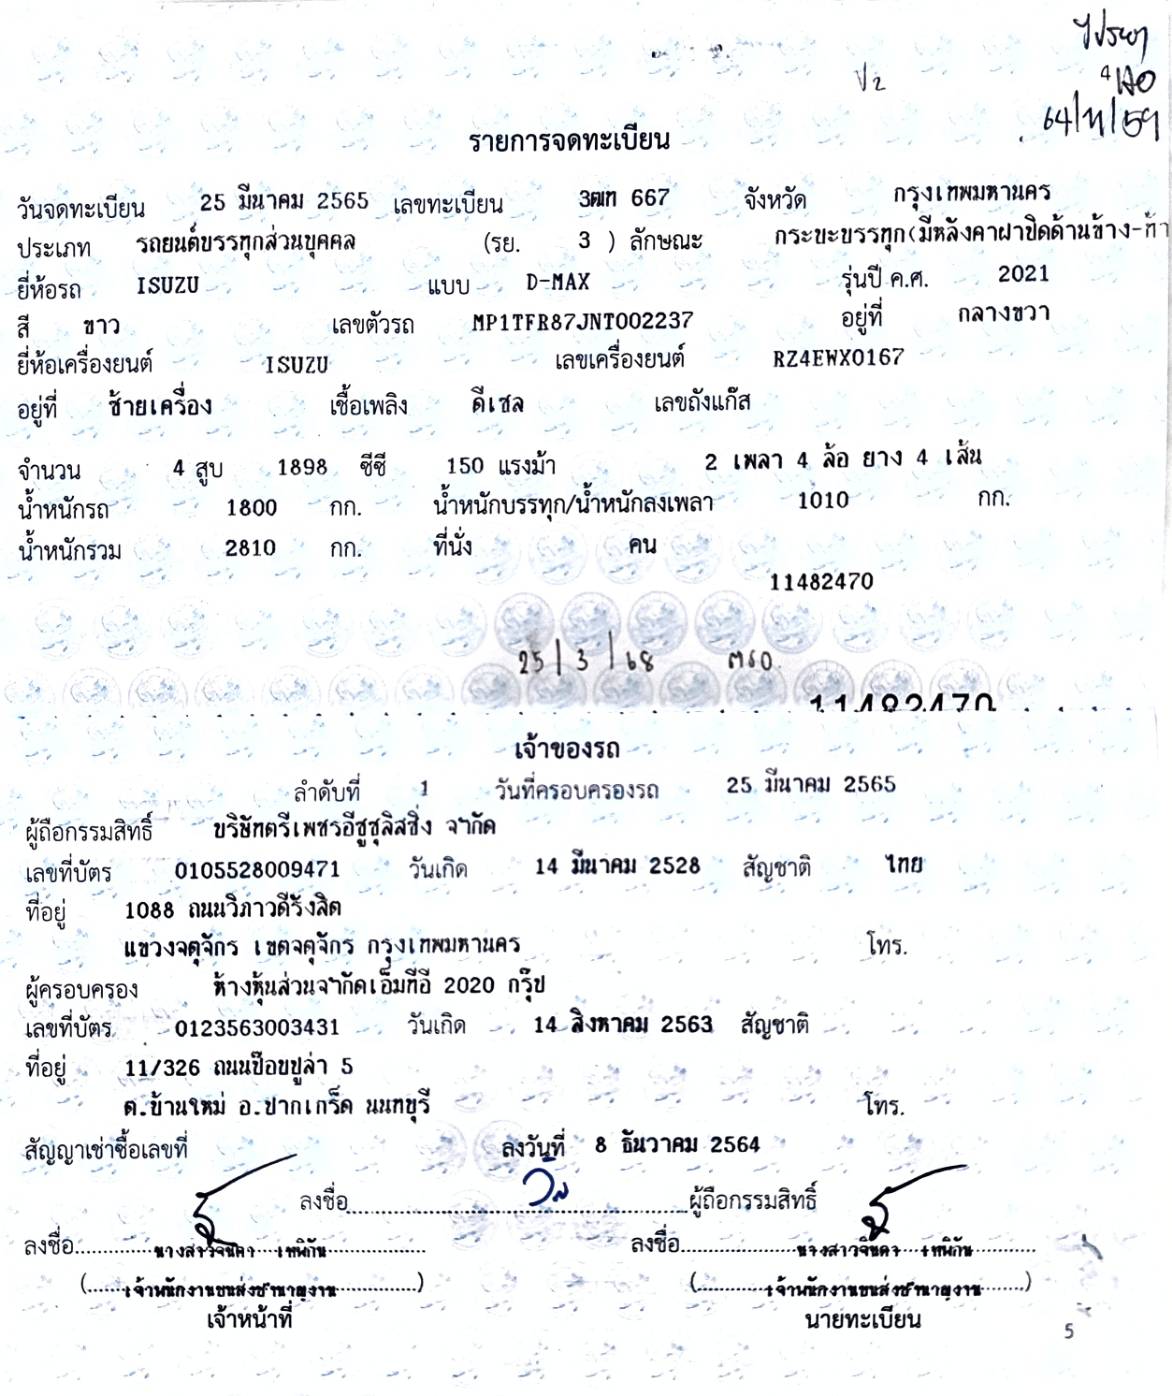 ป2
64/11/59
รายการจดทะเบียน
วันจดทะเบียน 25 มีนาคม 2565 เลขทะเบียน 3ฒท 667 จังหวัด กรุงเทพมหานคร
ประเภท รถยนต์บรรทุกส่วนบุคคล (รย. 3 ) ลักษณะ กระบะบรรทุก(มีหลังคาฝาปิดด้านข้าง-ท้า
ยี่ห้อรถ ISUZU แบบ D-MAX รุ่นปี ค.ศ. 2021
สี ขาว เลขตัวรถ MP1TFR87JNT002237 อยู่ที่ กลางขวา
ยี่ห้อเครื่องยนต์ ISUZU เลขเครื่องยนต์ RZ4EWX0167
อยู่ที่ ซ้ายเครื่อง เชื้อเพลิง ดีเซล เลขถังแก๊ส
จำนวน 4 สูบ 1898 ซีซี 150 แรงม้า 2 เพลา 4 ล้อ ยาง 4 เส้น
น้ำหนักรถ 1800 กก. น้ำหนักบรรทุก/น้ำหนักลงเพลา 1010 กก.
น้ำหนักรวม 2810 กก. ที่นั่ง คน
11482470
25/3/68
11482470
เจ้าของรถ
ลำดับที่ 1 วันที่ครอบครองรถ 25 มีนาคม 2565
ผู้ถือกรรมสิทธิ์ บริษัทตรีเพชรอีซูซุลิสซิ่ง จำกัด
เลขที่บัตร 0105528009471 วันเกิด 14 มีนาคม 2528 สัญชาติ ไทย
ที่อยู่ 1088 ถนนวิภาวดีรังสิต
แขวงจตุจักร เขตจตุจักร กรุงเทพมหานคร โทร.
ผู้ครอบครอง ห้างหุ้นส่วนจำกัดเอ็มทีอี 2020 กรุ๊ป
เลขที่บัตร 0123563003431 วันเกิด 14 สิงหาคม 2563 สัญชาติ
ที่อยู่ 11/326 ถนนป๊อบปูล่า 5
ต.บ้านใหม่ อ.ปากเกร็ด นนทบุรี โทร.
สัญญาเช่าซื้อเลขที่ ลงวันที่ 8 ธันวาคม 2564
ลงชื่อ ผู้ถือกรรมสิทธิ์
ลงชื่อ นางสาวจินดา เทพิกัน ลงชื่อ นางสาวจินดา เทพิกัน
(เจ้าพนักงานขนส่งชำนาญงาน) (เจ้าพนักงานขนส่งชำนาญงาน)
เจ้าหน้าที่ นายทะเบียน
5